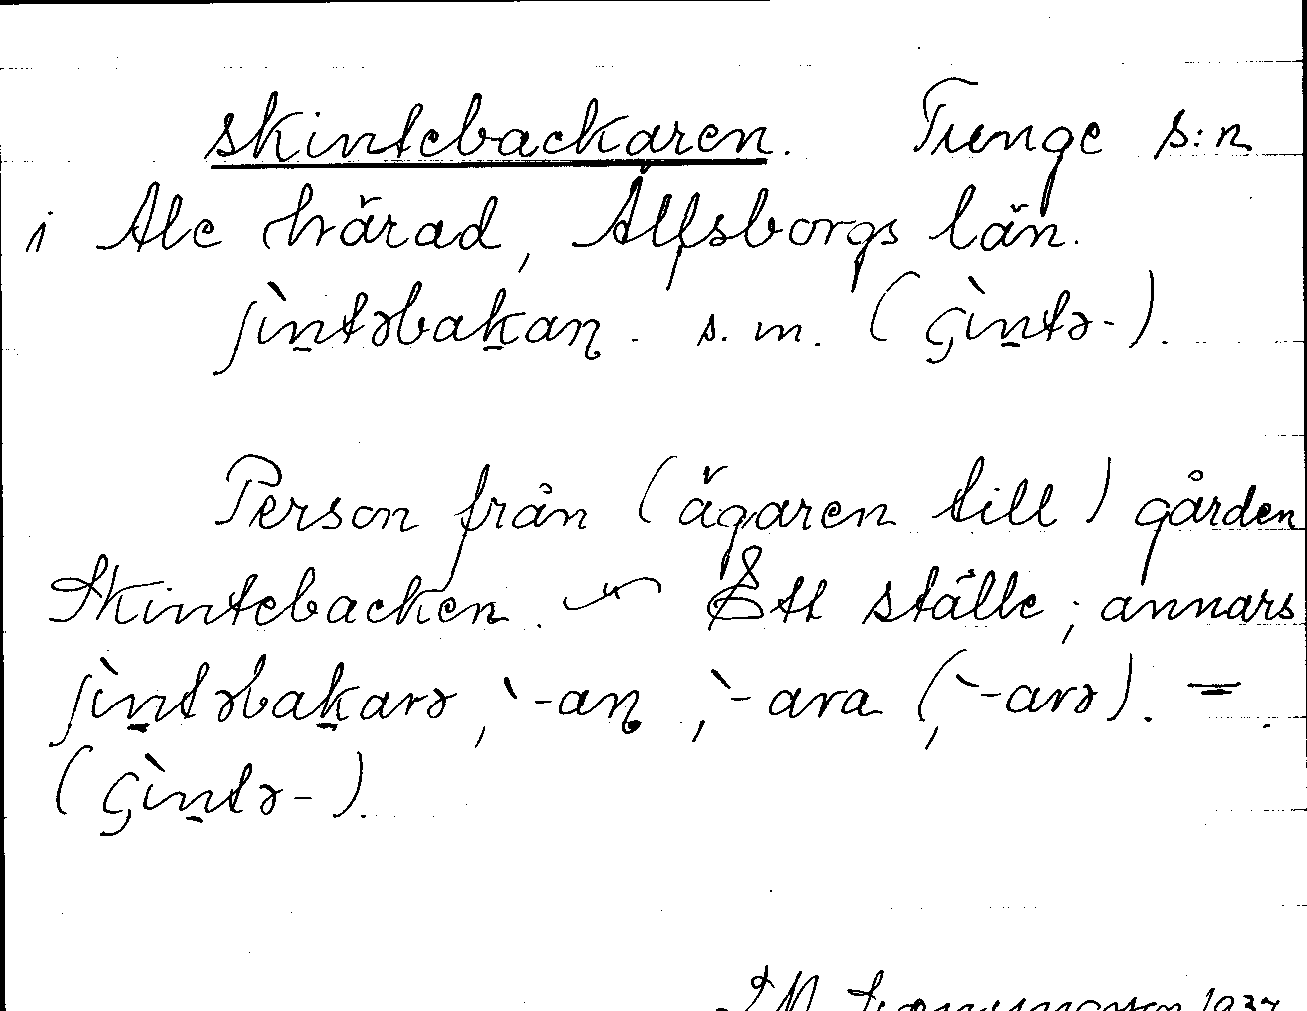 skintebackaren. Tunge s:n
i Ale härad, Älfsborgs län.
ʃìntəbakaɳ. s. m. (çìntə-).
Person från (ägaren till) gården
Skintebacken. Ett ställe; annars
ʃìntəbakarə, `-aɳ, `-ara (, `-arə). =
(çìntə-).
1937